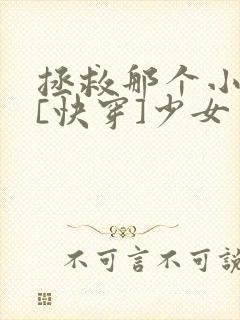 拯救那个小
[快穿]少女
不可言不可說